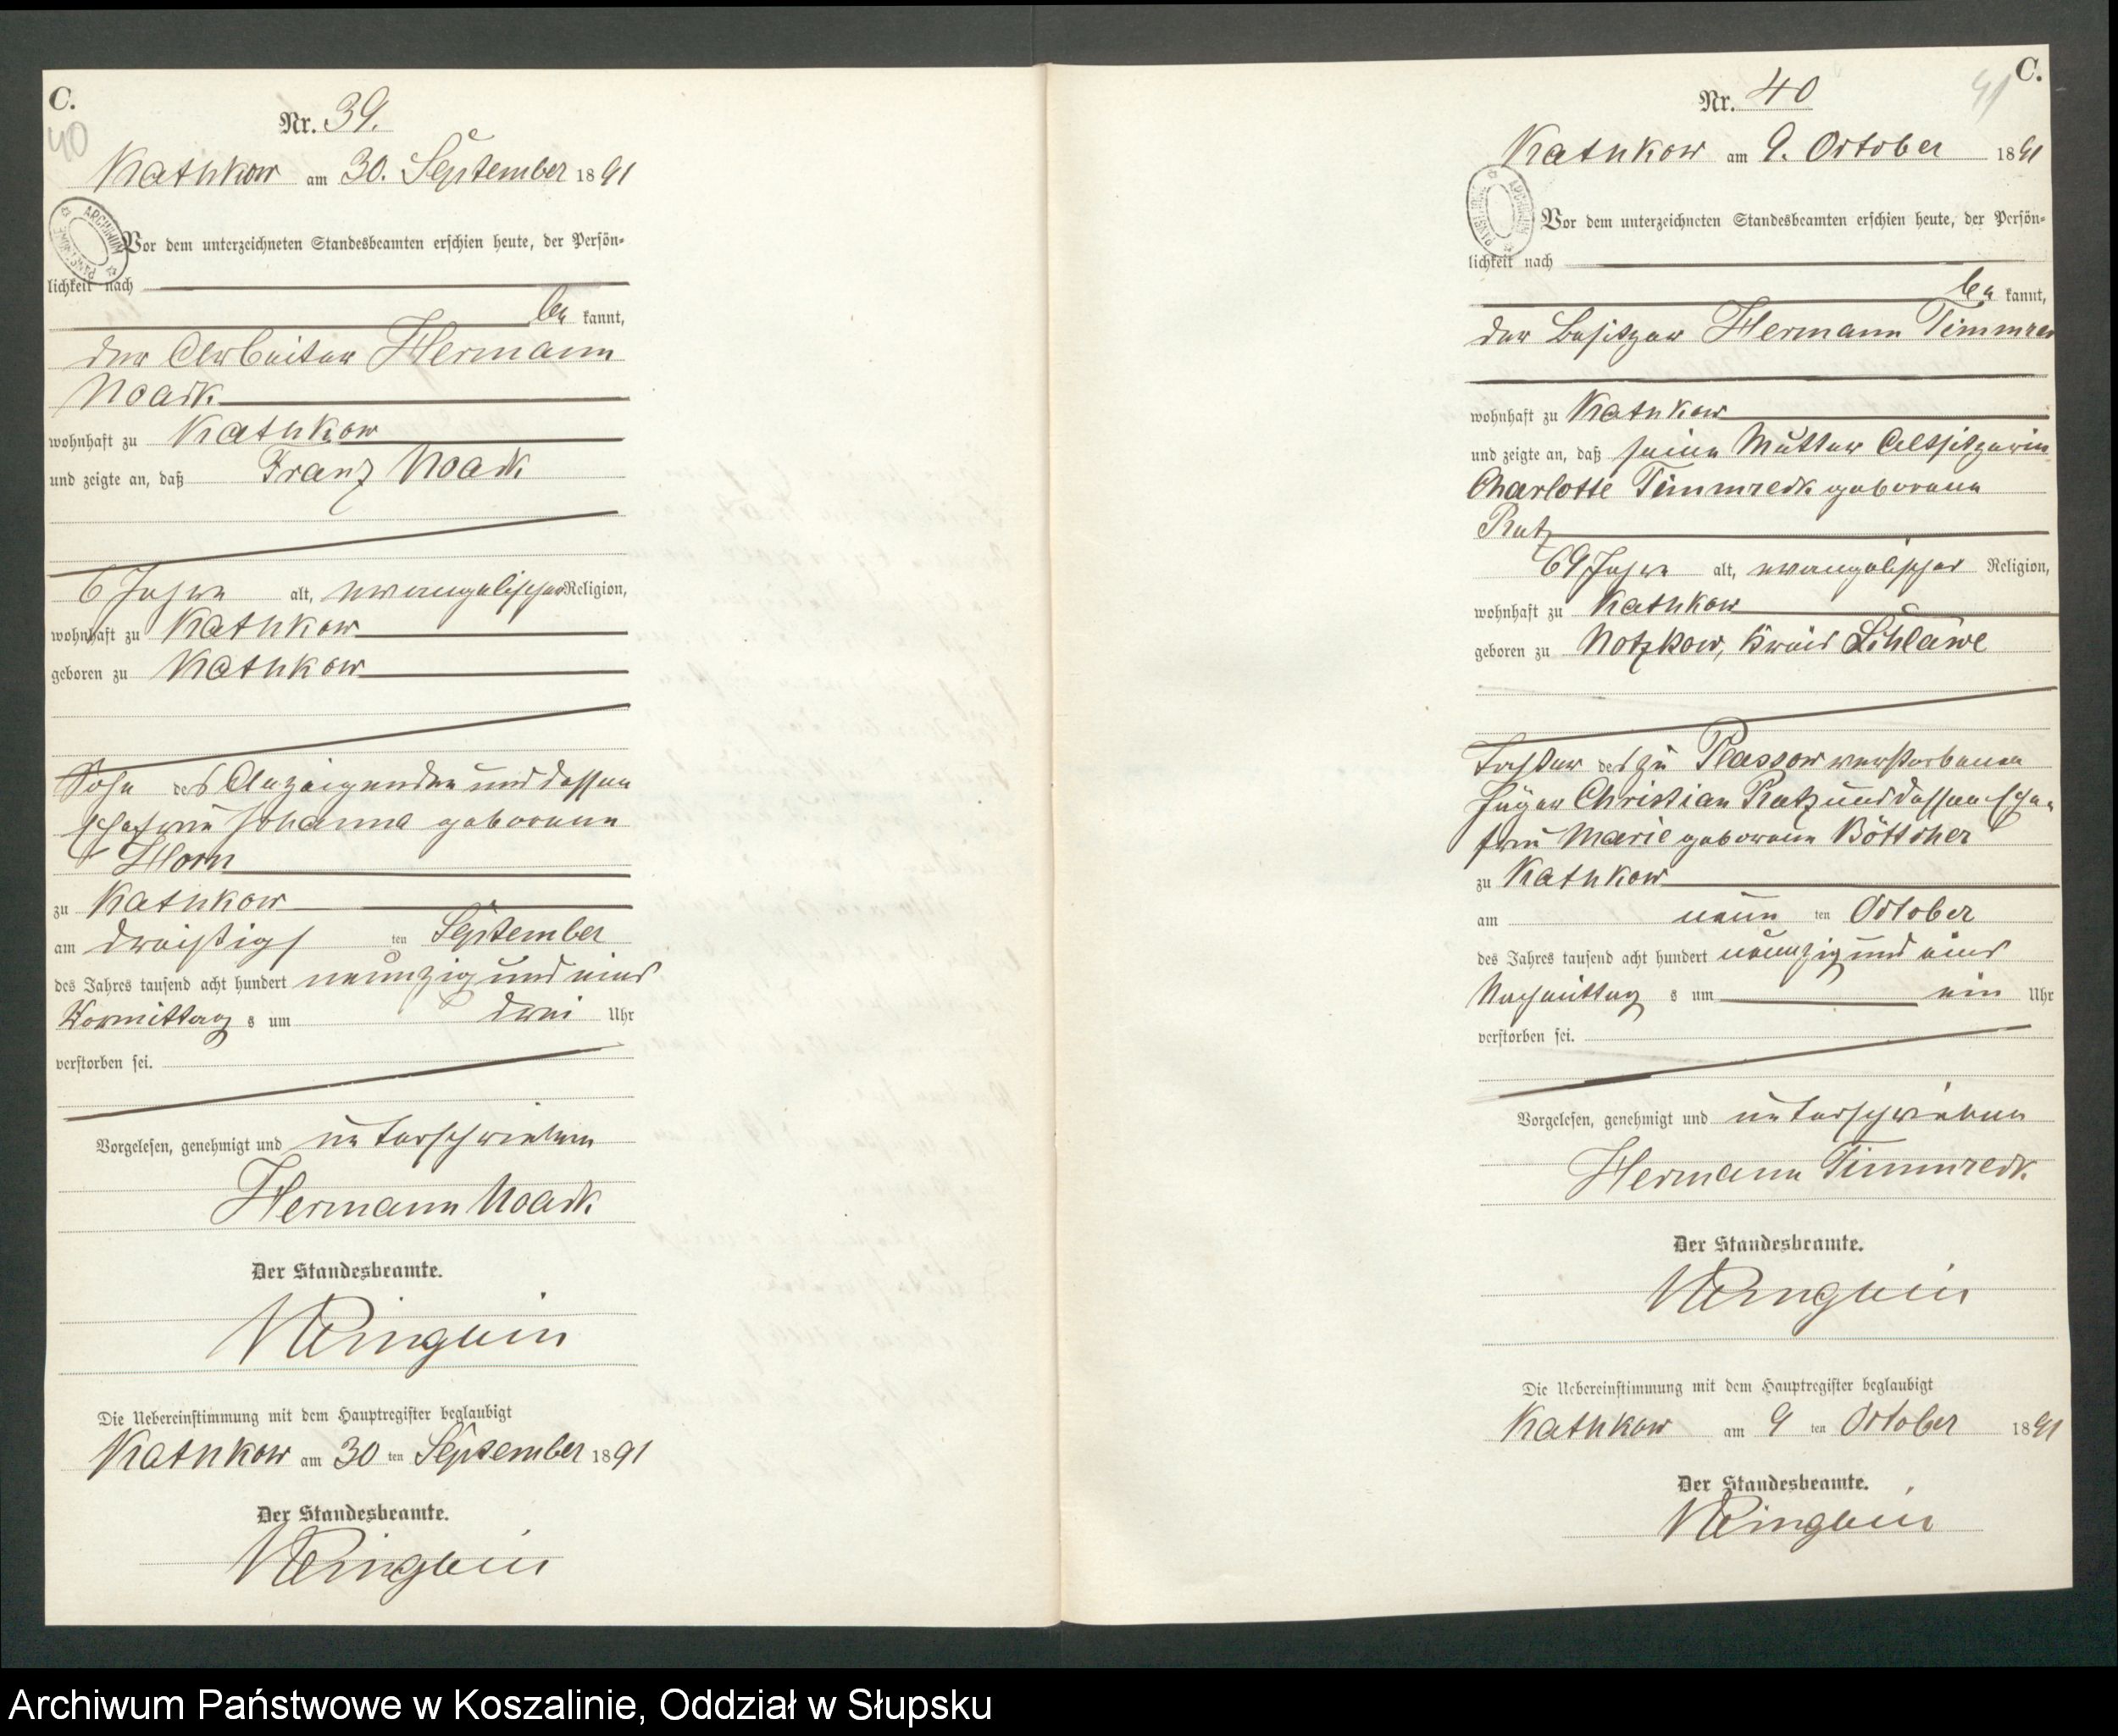 C.
40
Nr. 39.
Kathkow am 30. September 1891
Vor dem unterzeichneten Standesbeamten erschien heute, der Persön-
lichkeit nach
be kannt,
der Arbeiter Hermann
Noack
wohnhaft zu Kathkow
und zeigte an, daß Franz Noack
6 Jahre alt, evangelischer Religion,
wohnhaft zu Kathkow
geboren zu Kathkow
Sohn des Anzeigenden und dessen
Ehefrau Johanna geborene
Horn
zu Kathkow
am dreißigs ten September
des Jahres tausend acht hundert neunzig und eins
Vormittag s um drei Uhr
verstorben sei.
Vorgelesen, genehmigt und unterschrieben
Hermann Noack
Der Standesbeamte.
Die Uebereinstimmung mit dem Hauptregister beglaubigt
Kathkow am 30 ten September 1891
Der Standesbeamte.
C.
41
Nr. 40
Kathkow am 9. October 1891
Vor dem unterzeichneten Standesbeamten erschien heute, der Persön-
lichkeit nach
be kannt,
der Besitzer Hermann Timmreck
wohnhaft zu Kathkow
und zeigte an, daß seine Mutter Altsitzerin
Charlotte Timmreck geborene
Rutz
69 Jahre alt, evangelischer Religion,
wohnhaft zu Kathkow
geboren zu Notzkow, Kreis Schlawe
Tochter des zu Plassow verstorbenen
Jäger Christian Rutz und dessen Ehe-
frau Marie geborene Böttcher
zu Kathkow
am neun ten October
des Jahres tausend acht hundert neunzig und eins
Nachmittag s um ein Uhr
verstorben sei.
Vorgelesen, genehmigt und unterschrieben
Hermann Timmreck
Der Standesbeamte.
Die Uebereinstimmung mit dem Hauptregister beglaubigt
Kathkow am 9 ten October 1891
Der Standesbeamte.
Archiwum Państwowe w Koszalinie, Oddział w Słupsku